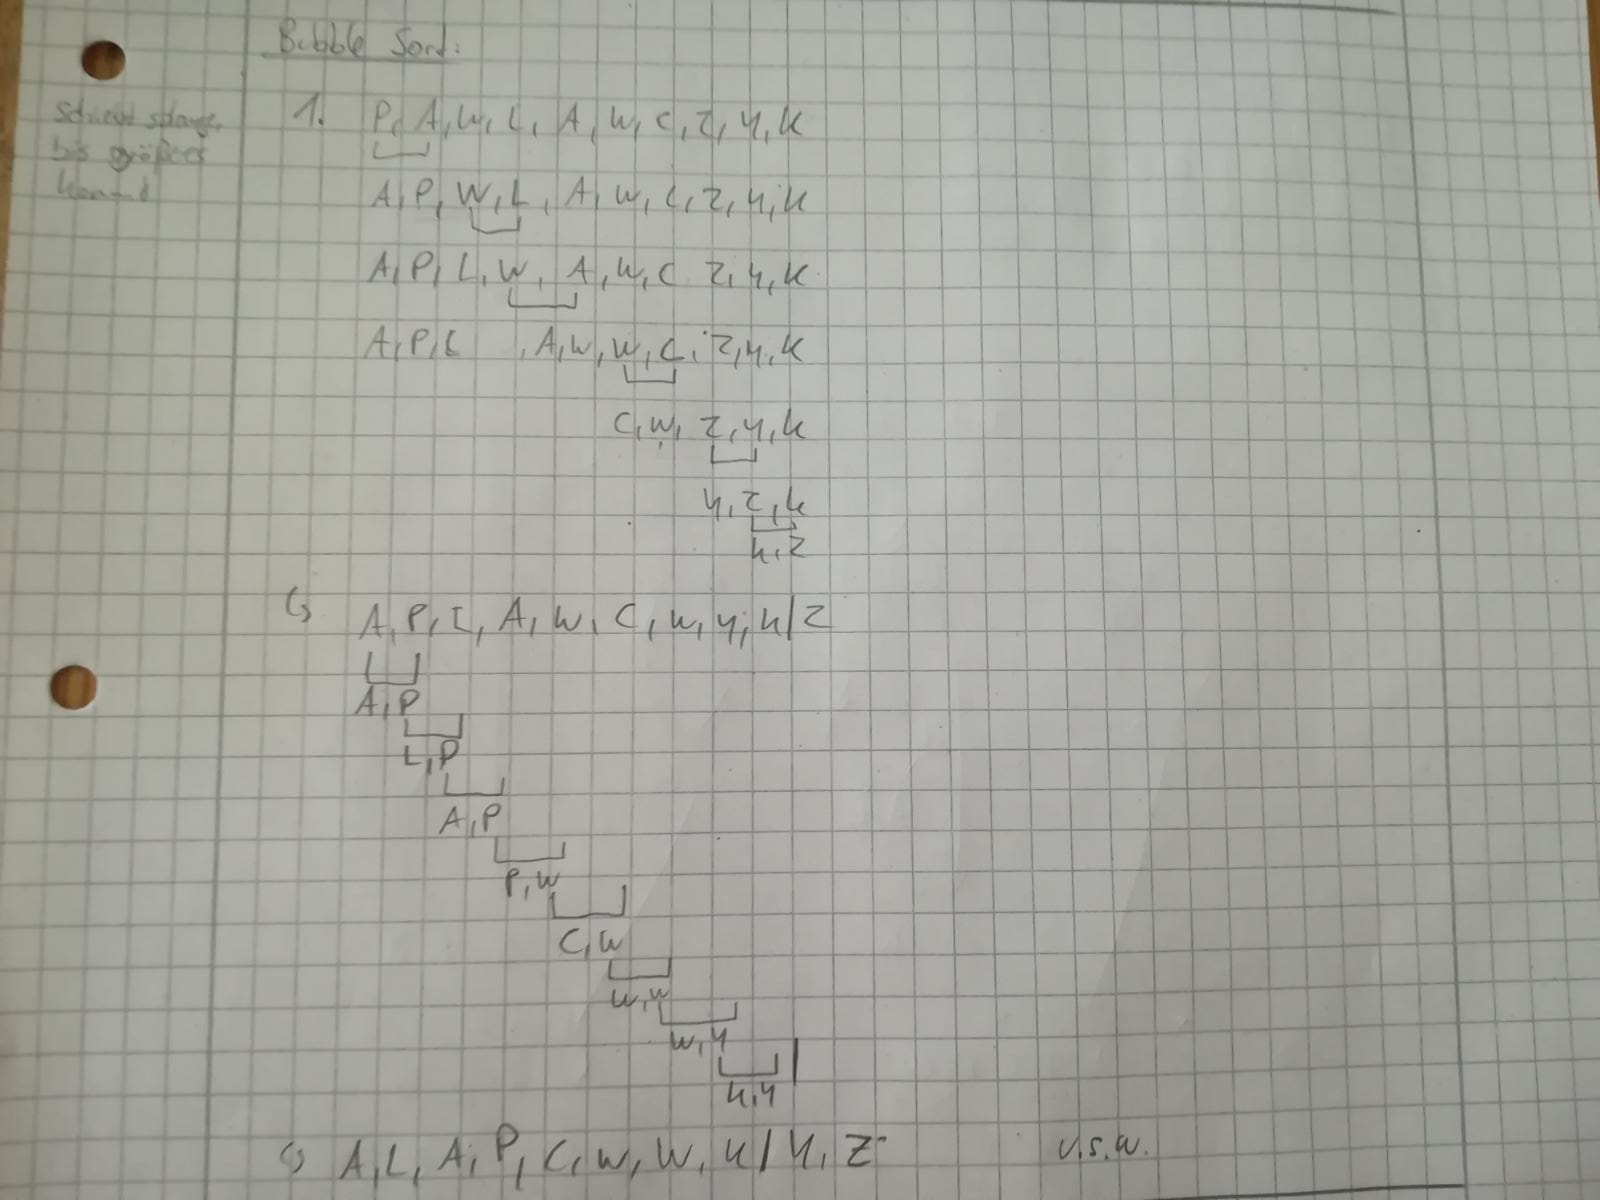 Bubble Sort:
schiebt solange,
bis größeres
kommt
1. P, A, W, L, A, W, C, Z, Y, K
A, P, W, L, A, W, C, Z, Y, K
A, P, L, W, A, W, C Z, Y, K
A, P, L , A, W, W, C, Z, Y, K
C, W, Z, Y, K
Y, Z, K
K, Z
↳ A, P, L, A, W, C, W, Y, K / Z
A, P
L, P
A, P
P, W
C, W
W, W
W, Y
K, Y
↳ A, L, A, P, C, W, W, K / Y, Z u.s.w.